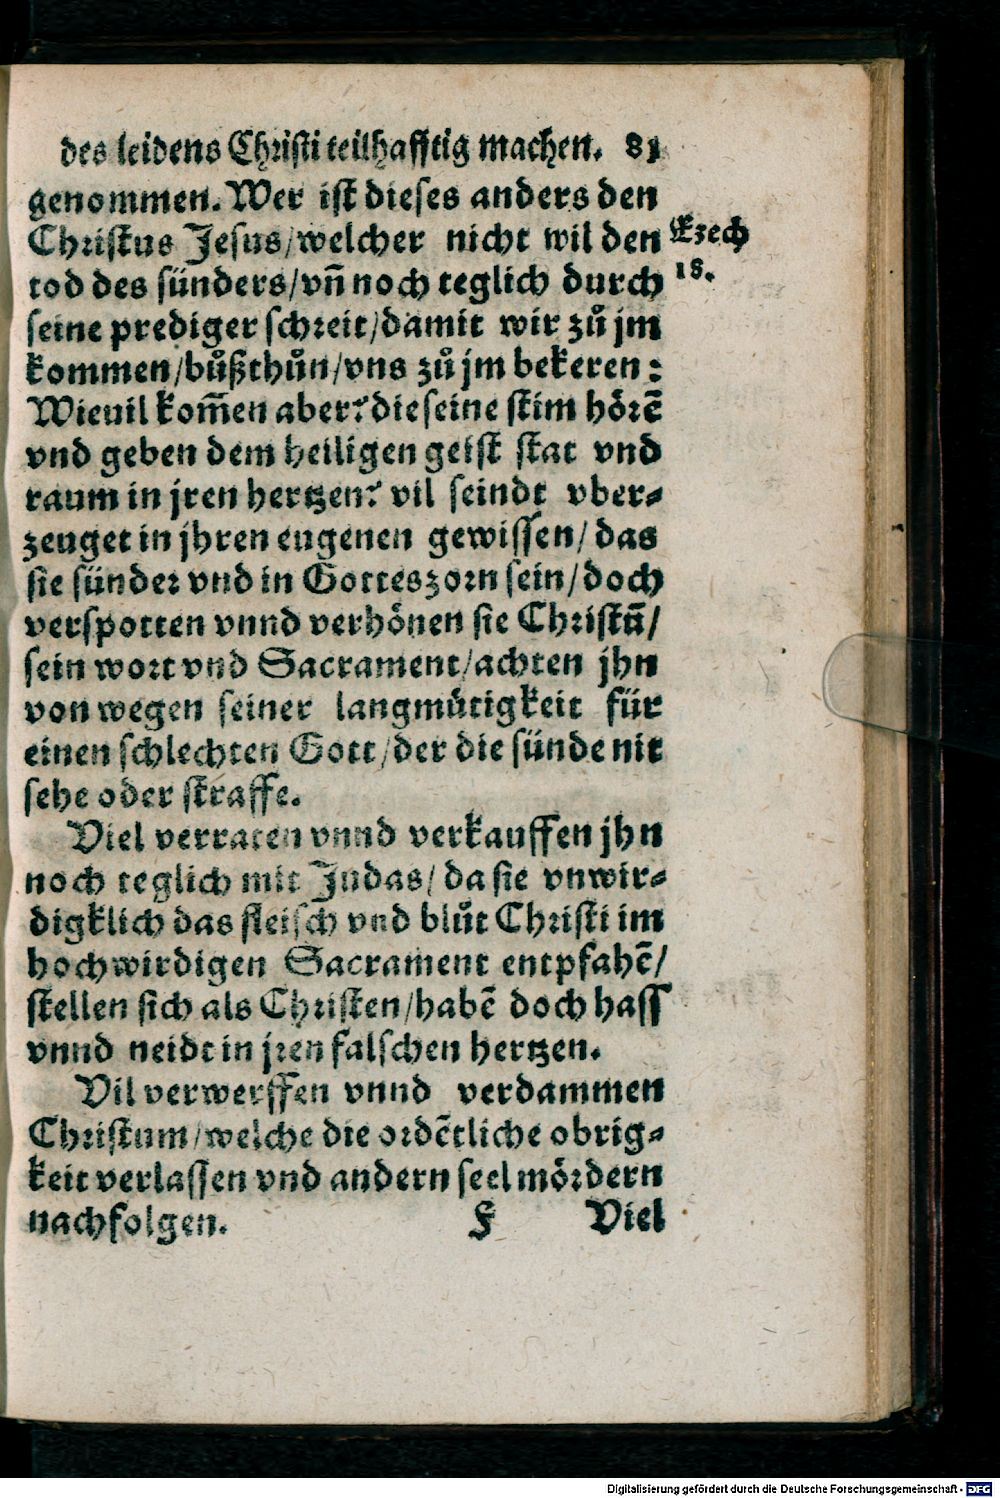 des leidens Christi teilhafftig machen. 81
genommen. Wer ist dieses anders den
Christus Jesus/welcher nicht wil den
Ezech
tod des sünders/vñ noch teglich durch
18.
seine prediger schreit/damit wir zů jm
kommen/bůßthůn/vns zů jm bekeren:
Wieuil kom̃en aber? die seine stim hörẽ
vnd geben dem heiligen geist stat vnd
raum in jren hertzen? vil seindt vber-
zeuget in jhren eugenen gewissen/das
sie sünder vnd in Gottes zorn sein/doch
verspotten vnnd verhönen sie Christũ/
sein wort vnd Sacrament/achten jhn
von wegen seiner langmütigkeit für
einen schlechten Gott/der die sünde nit
sehe oder straffe.
Viel verraten vnnd verkauffen jhn
noch teglich mit Judas/da sie vnwir-
digklich das fleisch vnd blůt Christi im
hochwirdigen Sacrament entpfahẽ/
stellen sich als Christen/habẽ doch hass
vnnd neidt in jren falschen hertzen.
Vil verwerffen vnnd verdammen
Christum/welche die ordẽtliche obrig-
keit verlassen vnd andern seel mördern
nachfolgen. F Viel
Digitalisierung gefördert durch die Deutsche Forschungsgemeinschaft - DFG